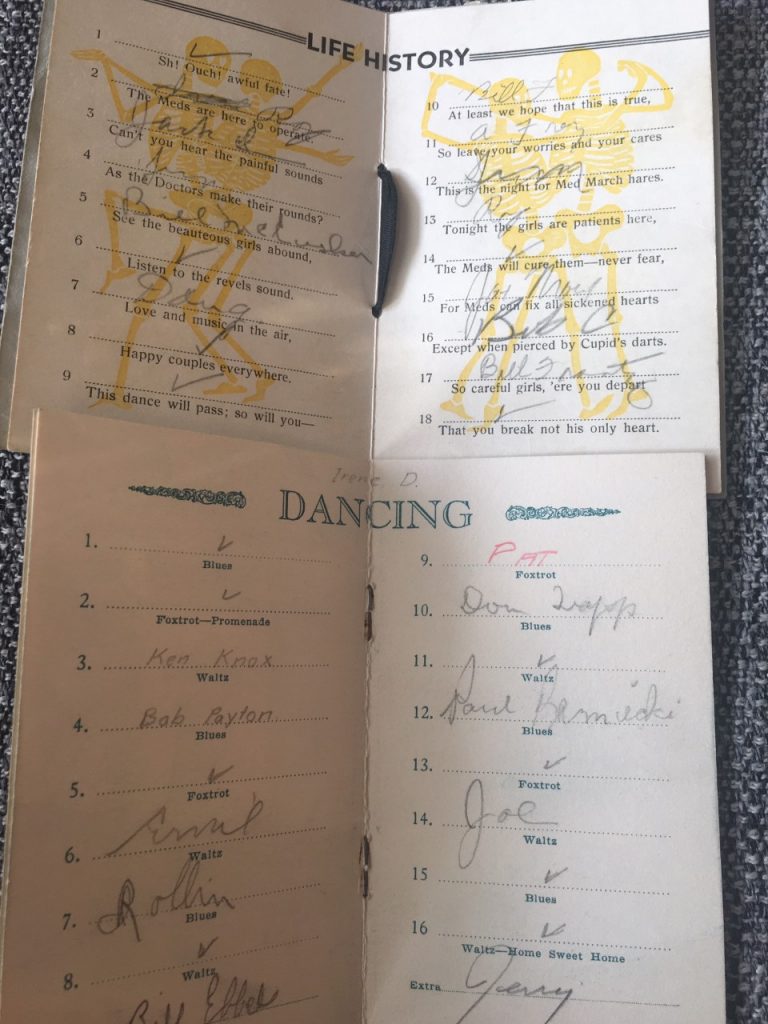 LIFE HISTORY
1 ✓
Sh! Ouch! awful fate!
2
The Meds are here to operate.
3 Jack
Can't you hear the painful sounds
4 Jim
As the Doctors make their rounds?
5 Bill
See the beauteous girls abound,
6 ✓
Listen to the revels sound.
7 Doug
Love and music in the air,
8 ✓
Happy couples everywhere.
9 ✓
This dance will pass; so will you—
10 Bill F
At least we hope that this is true,
11
So leave your worries and your cares
12
This is the night for Med March hares.
13
Tonight the girls are patients here,
14 ✓
The Meds will cure them—never fear,
15
For Meds can fix all sickened hearts
16 C
Except when pierced by Cupid's darts.
17 Bill
So careful girls, 'ere you depart
18 ✓
That you break not his only heart.
Irene D.
DANCING
1. ✓
Blues
2. ✓
Foxtrot—Promenade
3. Ken Knox
Waltz
4. Bob Payton
Blues
5. ✓
Foxtrot
6.
Waltz
7. Rollin
Blues
8. ✓
Waltz
Bill
9. PAT
Foxtrot
10. Don Trapp
Blues
11. ✓
Waltz
12. Paul
Blues
13. ✓
Foxtrot
14. Joe
Waltz
15 ✓
Blues
16 ✓
Waltz—Home Sweet Home
Extra Jerry